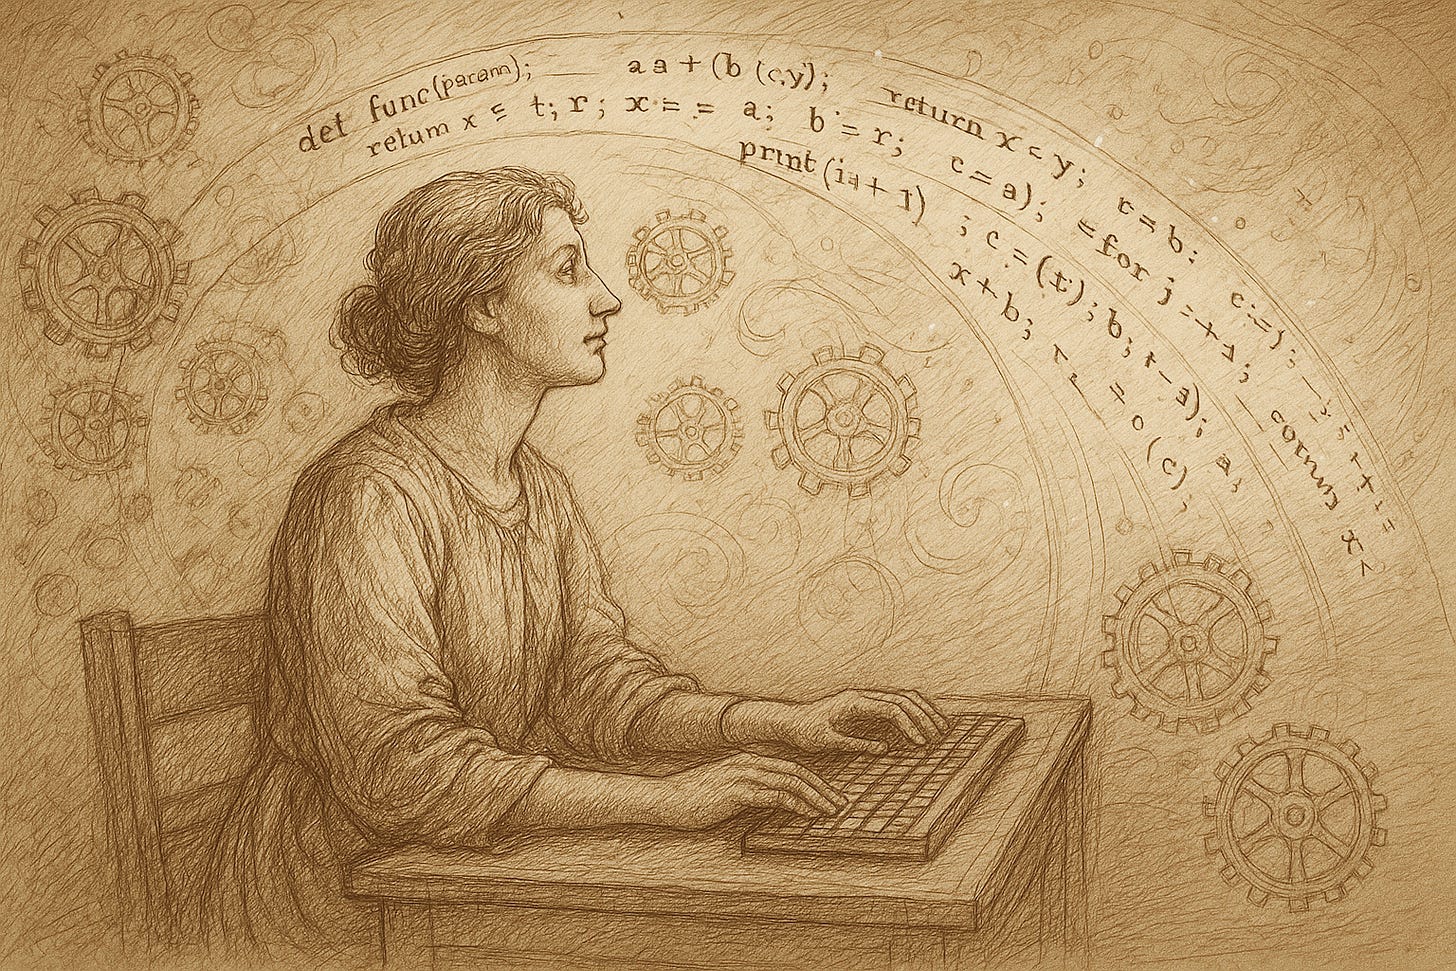 det func(param); aa + (b (c.y); return x < y; r = b: c:=);
retum x ≤ t; r; x = = a; b = r; c = a); = for j = + x;
print (ia + 1) ; c = (t); b; t - a); a;
x + b; = o (c),